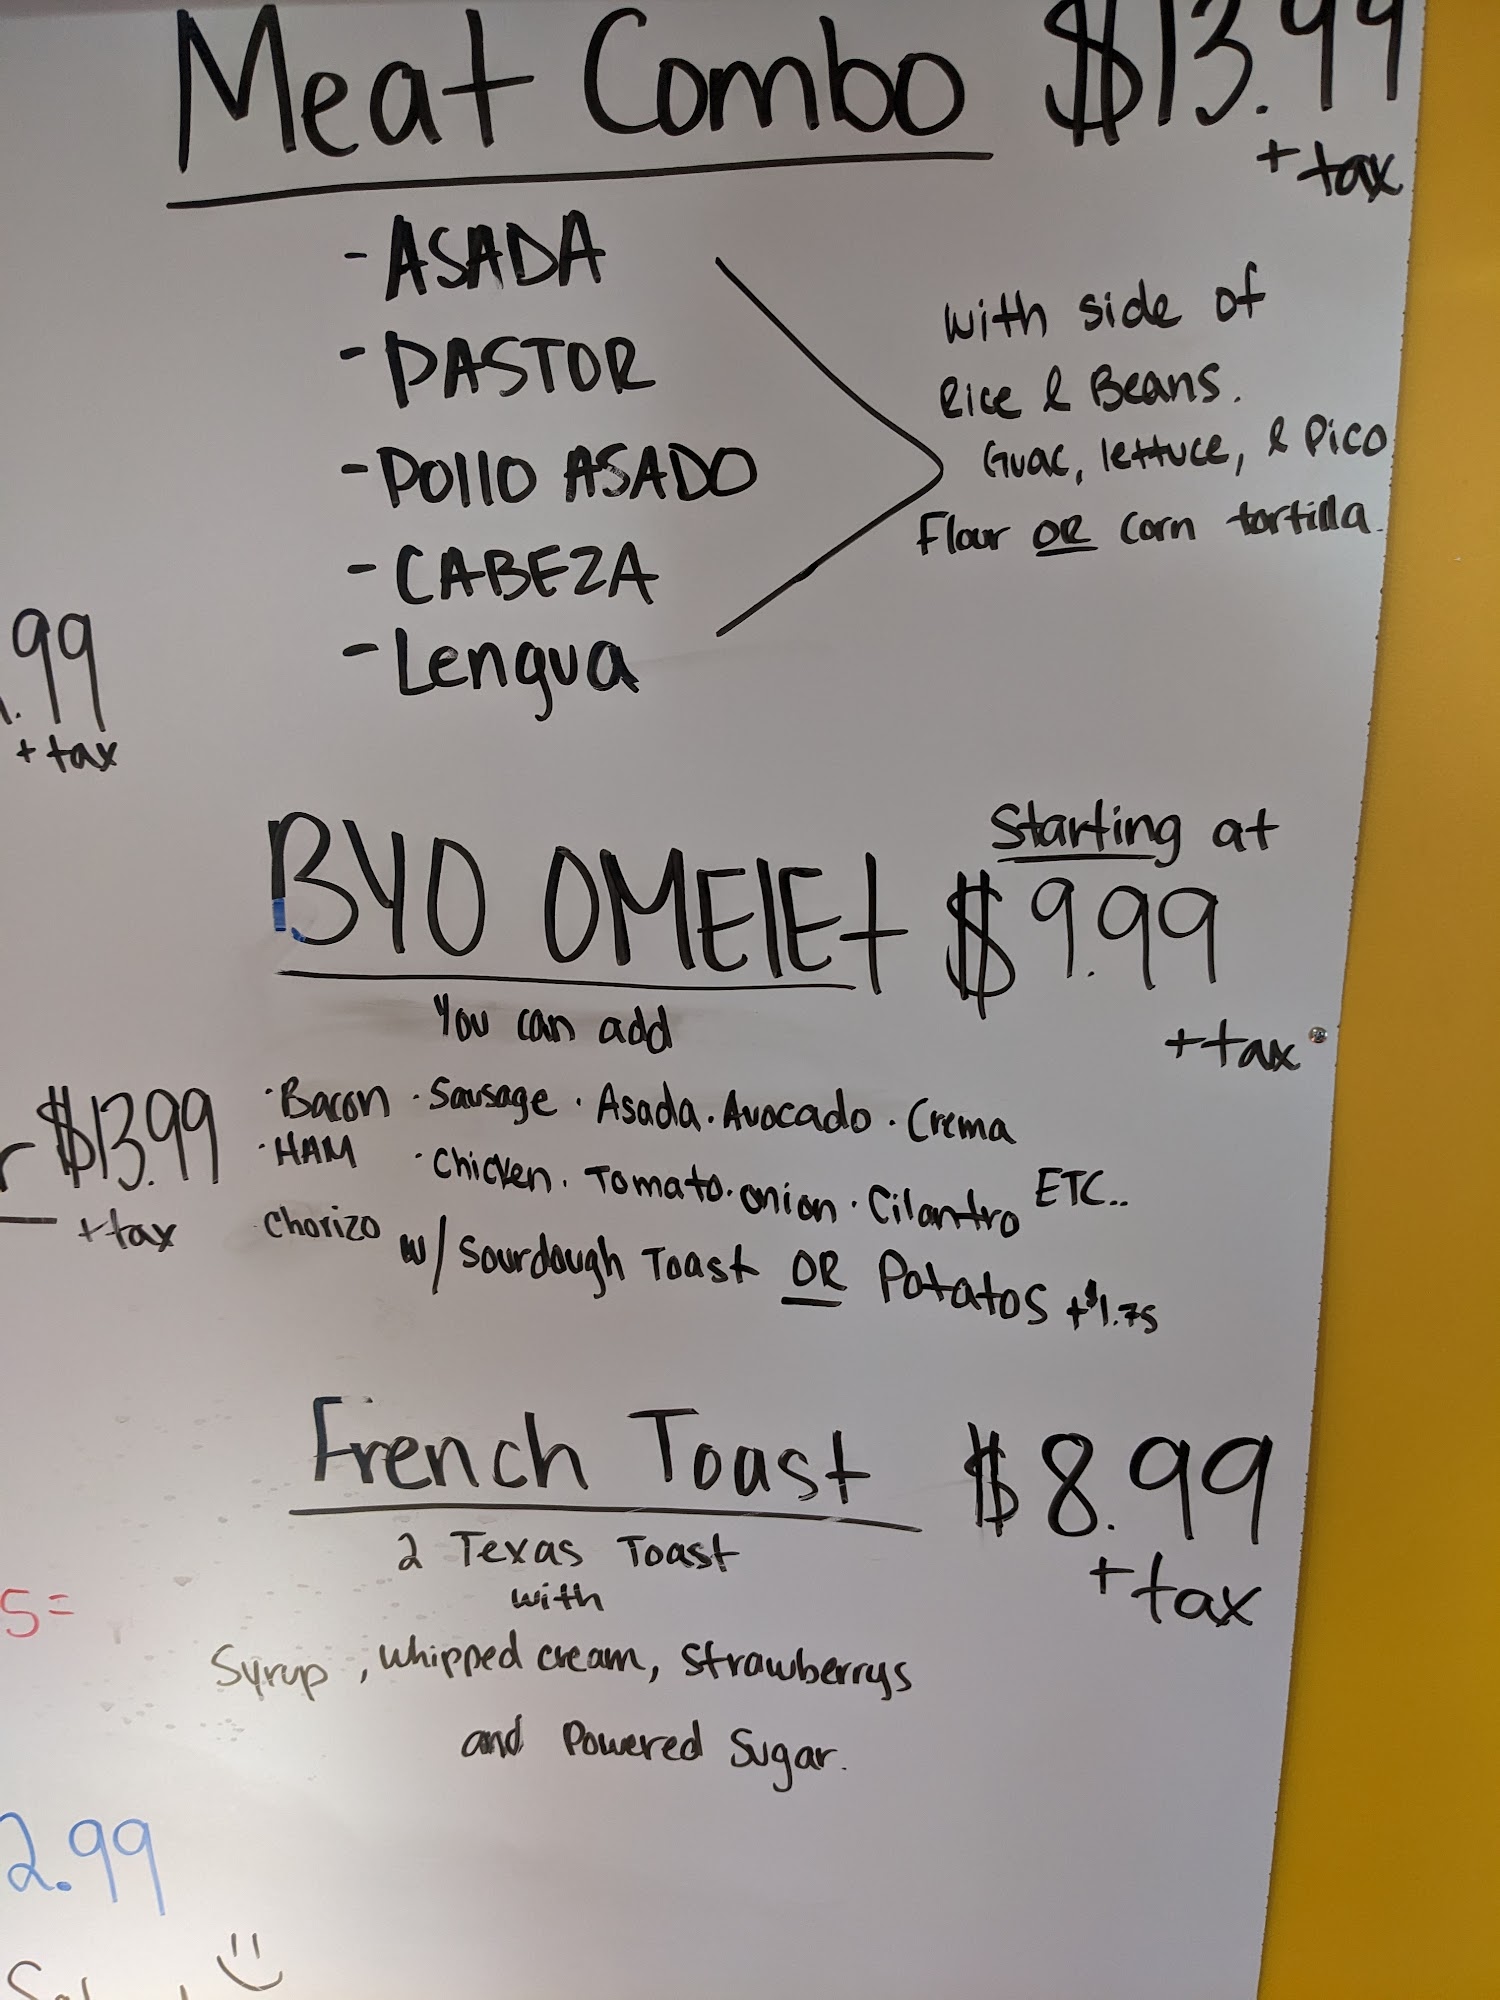 Meat Combo $13.99
+ tax
- ASADA
- PASTOR
- Pollo ASADO
- CABEZA
- Lengua
with side of
Rice & Beans.
Guac, lettuce, & Pico
Flour OR corn tortilla.
.99
+ tax
BYO OMElEt
Starting at
$9.99
+ tax
You can add
· Bacon · Sausage · Asada · Avocado · Crema
· HAM · Chicken · Tomato · onion · Cilantro ETC..
Chorizo
w/ Sourdough Toast OR Potatos +$1.75
$13.99
+ tax
French Toast $8.99
+ tax
2 Texas Toast
with
Syrup, whipped cream, Strawberrys
and Powered Sugar.
5=
2.99